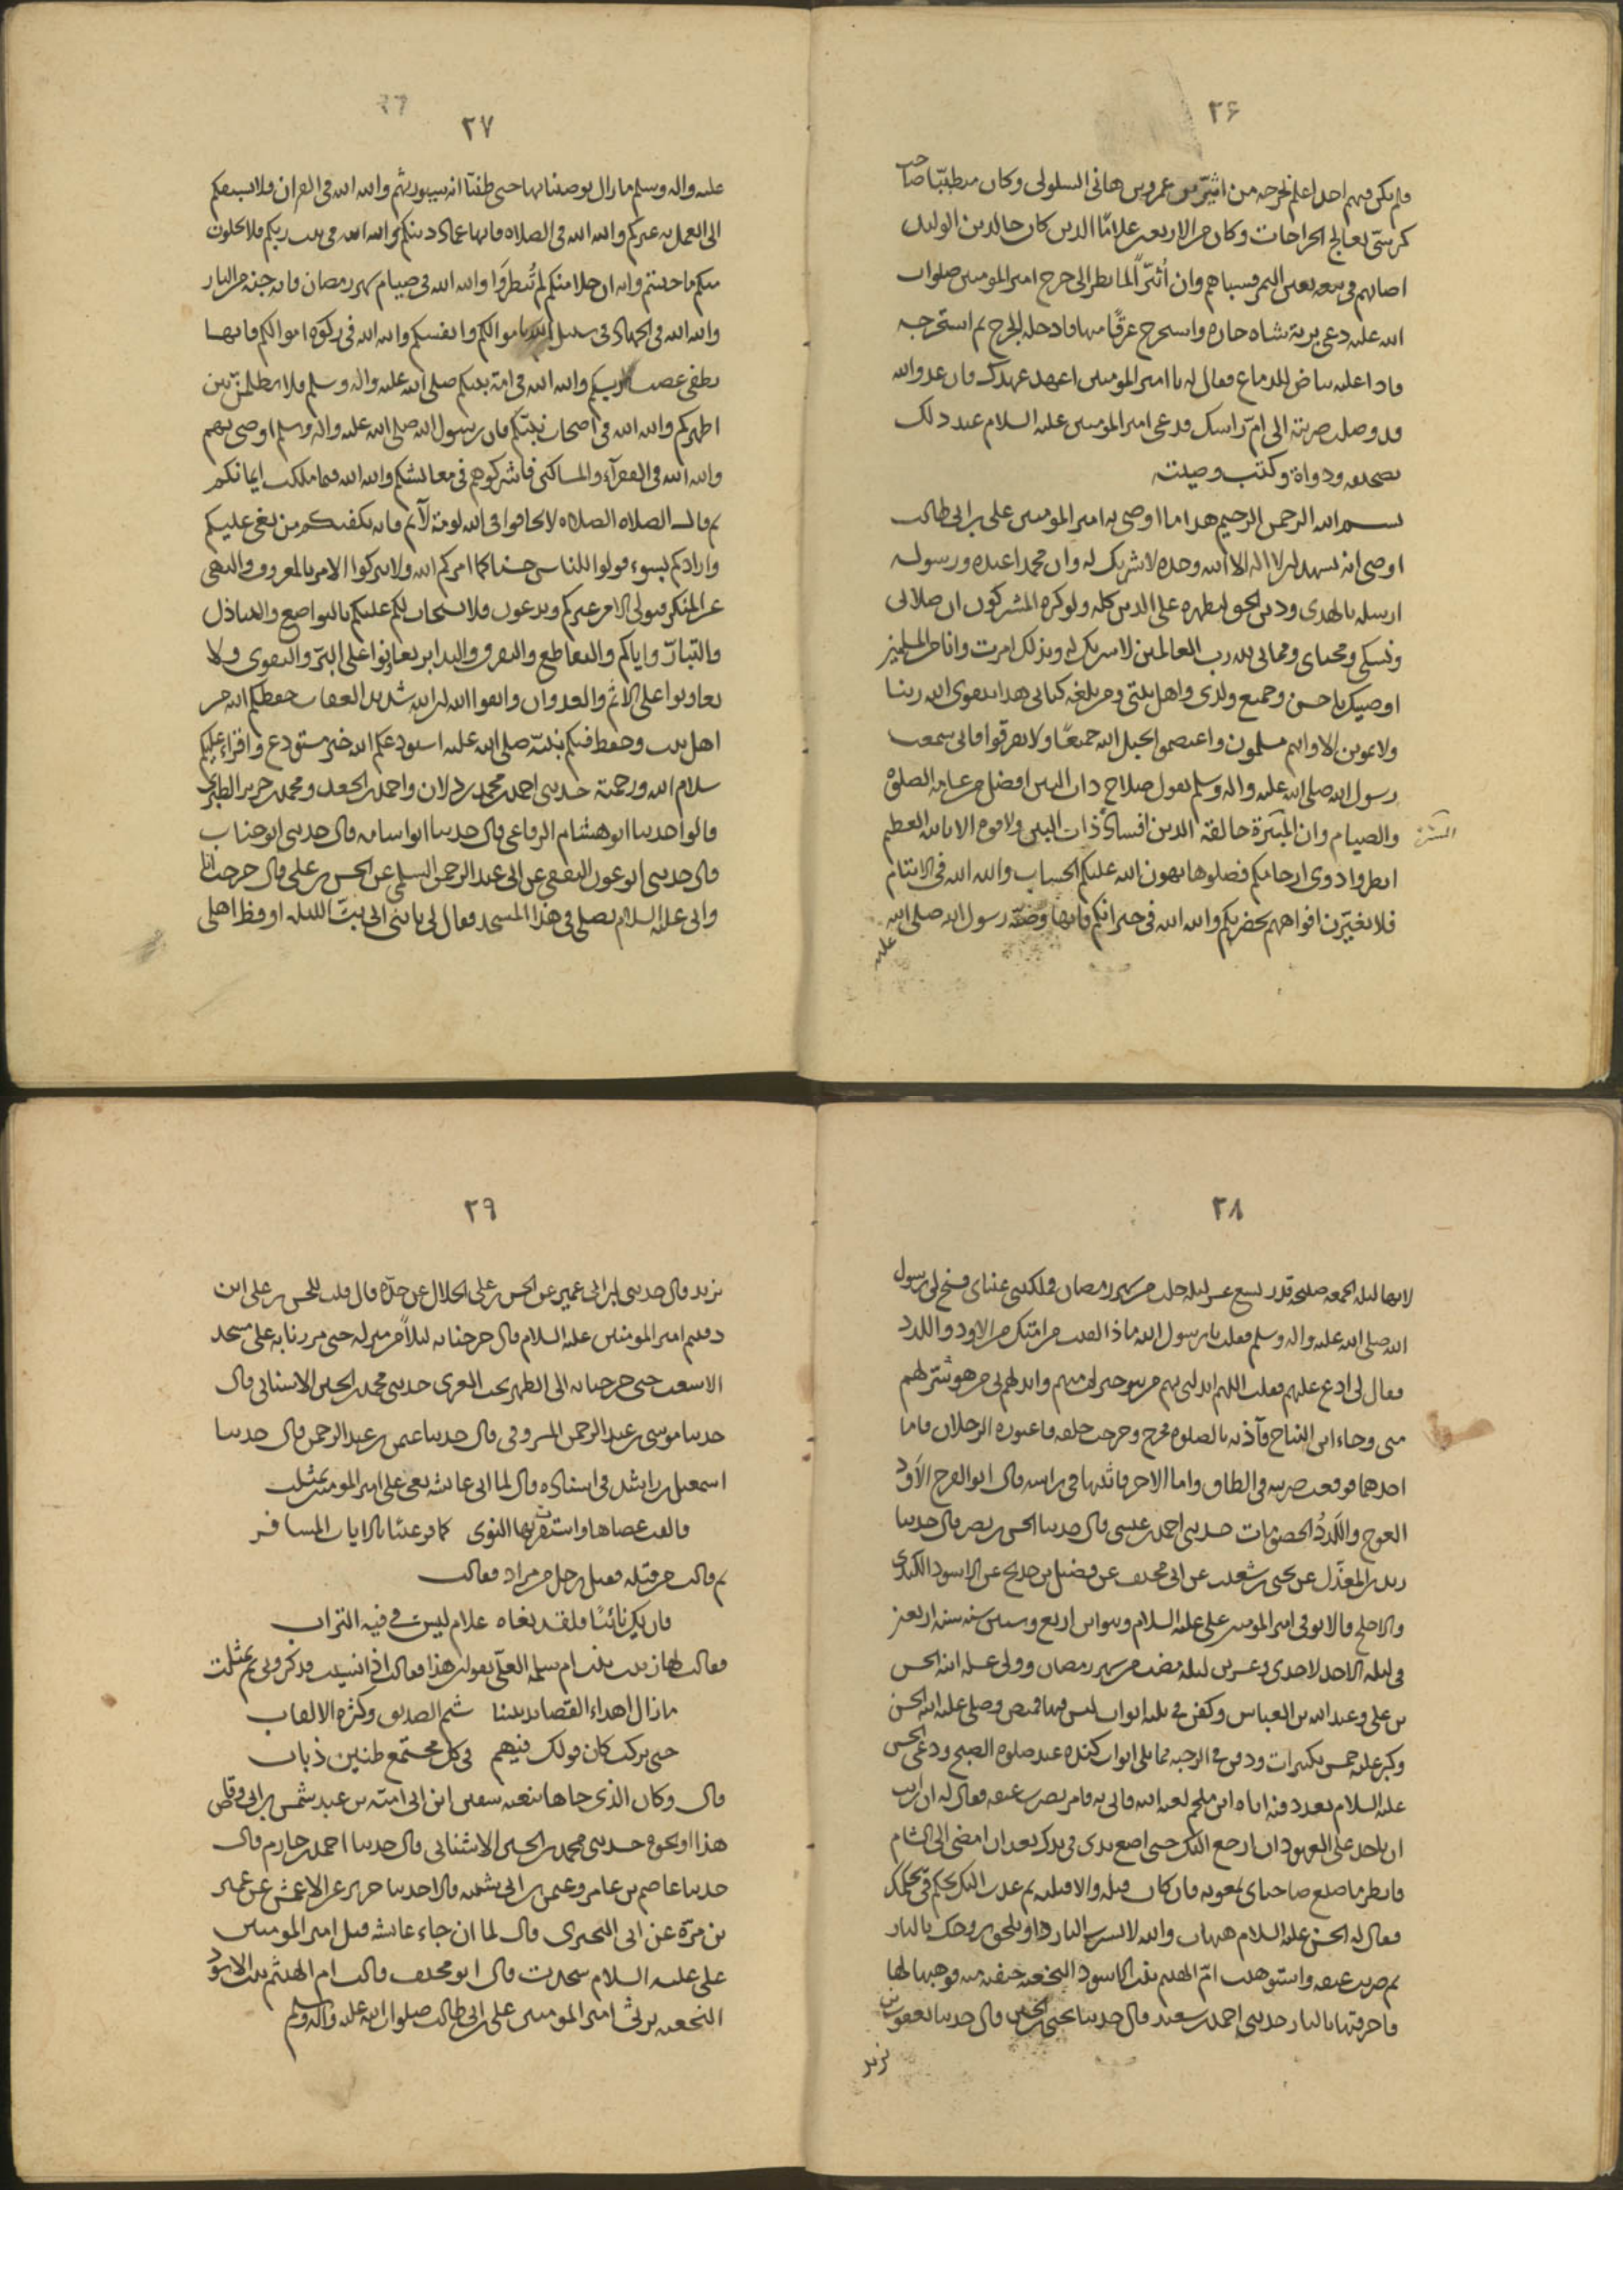 ٢۶
فلم يكن فيهم احد اعلم بجرحه من اثير بن عمرو بن هانى السلولى وكان متطببّا صاحب
كرسىّ يعالج الجراحات وكان من الاربعين غلامًا الذين كان خالد بن الوليد
اصابهم فى بيعه بعين التمر فسباهم وان أثيرًا لما نظر الى جرح امير المومنين صلوات
الله عليه دعى برية شاه حاره واسخرج عرقًا منها فادخله الجرح ثم استخرجه
فاذا عليه بياض الدماغ فقال له يا امير المومنين اعهد عهدك فان عدو الله
قد وصلت ضربته الى امّ راسك فدعى امير المومنين عليه السلام عند ذلك
بصحيفه ودواة وكتب وصيته
بسم الله الرحمن الرحيم هذا ما اوصى به امير المومنين على بن ابى طالب
اوصى انه يشهد ان لا اله الا الله وحده لا شريك له وان محمدا عبده ورسوله
ارسله بالهدى ودين الحق ليظهره على الدين كله ولو كره المشركون ان صلاتى
ونسكى ومحياى ومماتى لله رب العالمين لا شريك له وبذلك امرت وانا من المسلمين
اوصيك يا حسن وجميع ولدى واهل بيتى ومن بلغه كتابى هذا بتقوى الله ربنا
ولا تموتن الا وانتم مسلمون واعتصموا بحبل الله جميعًا ولا تفرقوا فانى سمعت
رسول الله صلى الله عليه واله وسلم يقول صلاح ذات البين افضل من عامه الصلوه
والصيام وان المبيرة حالقة الدين افساد ذات البين ولا قوه الا بالله العظيم
انظروا ذوى ارحامكم فصلوها يهون الله عليكم الحساب والله الله فى الايتام
فلا تغيرّن افواههم بحضرتكم والله الله فى جيرانكم فانها وصيّة رسول الله صلى الله
عليه
٢٧
عليه واله وسلم ما زال يوصينا بها حتى ظننّا انه سيورثهم والله الله فى القران فلا يسبقكم
الى العمل به غيركم والله الله فى الصلاه فانها عماد دينكم والله الله فى بيت ربكم فلا يخلون
منكم ما حييتم وانه ان خلا منكم لم تُنظروَا والله الله فى صيام شهر رمضان فانه جنه من النار
والله الله فى الجهاد فى سبيل الله باموالكم وانفسكم والله الله فى زكوه اموالكم فانها
تطفى غضب ربكم والله الله فى امة نبيكم صلى الله عليه واله وسلم فلا يظلمنّ بين
اظهركم والله الله فى اصحاب نبيّكم فان رسول الله صلى الله عليه واله وسلم اوصى بهم
والله الله فى الفقرآء والمساكين فاشركوهم فى معايشكم والله الله فيما ملكت ايمانكم
ثم قال الصلاه الصلاه لا تخافوا فى الله لومة لآئم فانه يكفيكم من بغى عليكم
وارادكم بسوء قولوا للناس حسنا كما امركم الله ولا تتركوا الامر بالمعروف والنهى
عن المنكر فيولى الامر غيركم وتدعون فلا يستجاب لكم عليكم بالتواضع والتباذل
والتبارّ واياكم والتقاطع والتفرق والتدابر تعاونوا على البرّ والتقوى ولا
تعاونوا على الاثم والعدوان واتقوا الله ان الله شديد العقاب حفظكم الله من
اهل بيت وحفظ فيكم نبيّه صلى الله عليه استودعكم الله خير مستودع واقراء عليكم
سلام الله ورحمته حدثنى احمد بن محمد بن دلان واحمد بن الجعد ومحمد بن جرير الطبرى
قالوا حدثنا ابو هشام الرفاعى قال حدثنا ابو اسامه قال حدثنى ابو جناب
قال حدثنى ابو عون الثقفى عن ابى عبد الرحمن السلمى عن الحسن بن على قال خرجت انا
وابى عليه السلام نصلى فى هذا المسجد فقال لى يا بنى انى بتّ الليله اوقظ اهلى
٢٨
لانها ليله الجمعه صبيحة قدر لتسع عشر ليله خلت من شهر رمضان فملكتنى عيناى فسنح لى رسول
الله صلى الله عليه واله وسلم فقلت يا رسول الله ماذا لقيت من امتك من الاود واللدد
فقال لى ادع عليهم فقلت اللهم ابدلنى بهم من هو خير لى منهم وابدلهم بى من هو شرّ لهم
منى وجاء ابن النباح فآذنه بالصلوه فخرج وخرجت خلفه فاعتوره الرجلان فاما
احدهما فوقعت ضربته فى الطاق واما الاخر فاثبتها فى راسه قال ابو الفرج الآوَد
العوج واللَدَدُ الخصومات حدثنى احمد بن عيسى قال حدثنا الحسن بن نصر قال حدثنا
زيد بن المعذّل عن يحيى بن شعيب عن ابى مخنف عن فضيل بن خديج عن الاسود الكندى
والاجلح قالا توفى امير المومنين على عليه السلام وهو ابن اربع وستين سنه سنة اربعين
فى ليله الاحد لاحدى وعشرين ليله مضت من شهر رمضان وولى غسله ابنه الحسن
بن على وعبد الله بن العباس وكفن فى ثلثه اثواب ليس فيها قميص وصلى عليه ابنه الحسن
وكبر عليه خمس تكبيرات ودفن فى الرحبه مما يلى ابواب كنده عند صلوه الصبح ودعى الحسن
عليه السلام بعد دفنه اباه ابن ملجم لعنه الله فاتى به فامر بضرب عنقه فقال له ان رايت
ان تاخذ على العهود ان ارجع اليك حتى اضع يدى فى يدك بعد ان امضى الى الشام
فانظر ما صنع صاحباى بمعويه فان كان قتله والا قتلته ثم عدت اليك تحكم فىّ بحكمك
فقال له الحسن عليه السلام هيهات والله لا تشرب البارد او تلحق روحك بالنار
ثم ضرب عنقه واستوهبت امّ الهيثم بنت الاسود النخعيه جيفته منه فوهبها لها
فاحرقتها بالنار حدثنى احمد بن سعيد قال حدثنا يحيى بن الحسن قال حدثنا يعقوب بن
يزيد
٢٩
يزيد قال حدثنى ابن ابى عمير عن الحسن بن على الخلال عن جدّه قال قلت للحسن بن على اين
دفنتم امير المومنين عليه السلام قال خرجنا به ليلًا من منزله حتى مررنا به على مسجد
الاشعث حتى خرجنا به الى الظهر بجنب الغرى حدثنى محمد بن الحسين الاشنانى قال
حدثنا موسى بن عبد الرحمن المسروقى قال حدثنا عثمن بن عبد الرحمن قال حدثنا
اسمعيل بن راشد فى اسناده قال لما اتى عائشه نعى على امير المومنين تمثلت
فالقت عصاها واستقرت بها النوى كما قر عينًا بالاياب المسافر
ثم قالت من قتله فقيل رجل من مراد فقالت
فان يك نائيًا فلقد بغاه غلام ليس فى فيه التراب
فقالت لها زينب بنت ام سلمه العلىّ تقولين هذا فقالت اذا نسيت فذكرونى ثم تمثلت
ما زال اهداء القصائد بيننا شتم الصديق وكثرة الالقاب
حتى تركت كان قولك فيهم فى كل مجتمع طنين ذباب
قال وكان الذى جاها بنعيه سفين ابن ابى اميّه بن عبد شمس بن ابى وقاص
هذا او نحوه حدثنى محمد بن الحسين الاشنانى قال حدثنا احمد بن حازم قال
حدثنا عاصم بن عامر وعثمن بن ابى شيبه قالا حدثنا جرير عن الاعمش عن عمرو
بن مرّة عن ابى البخترى قال لما ان جاء عائشه قتل امير المومنين
على عليه السلام سجدت قال ابو مخنف قالت ام الهيثم بنت الاسود
النخعيه ترثى امير المومنين على بن ابى طالب صلوات الله عليه واله وسلم